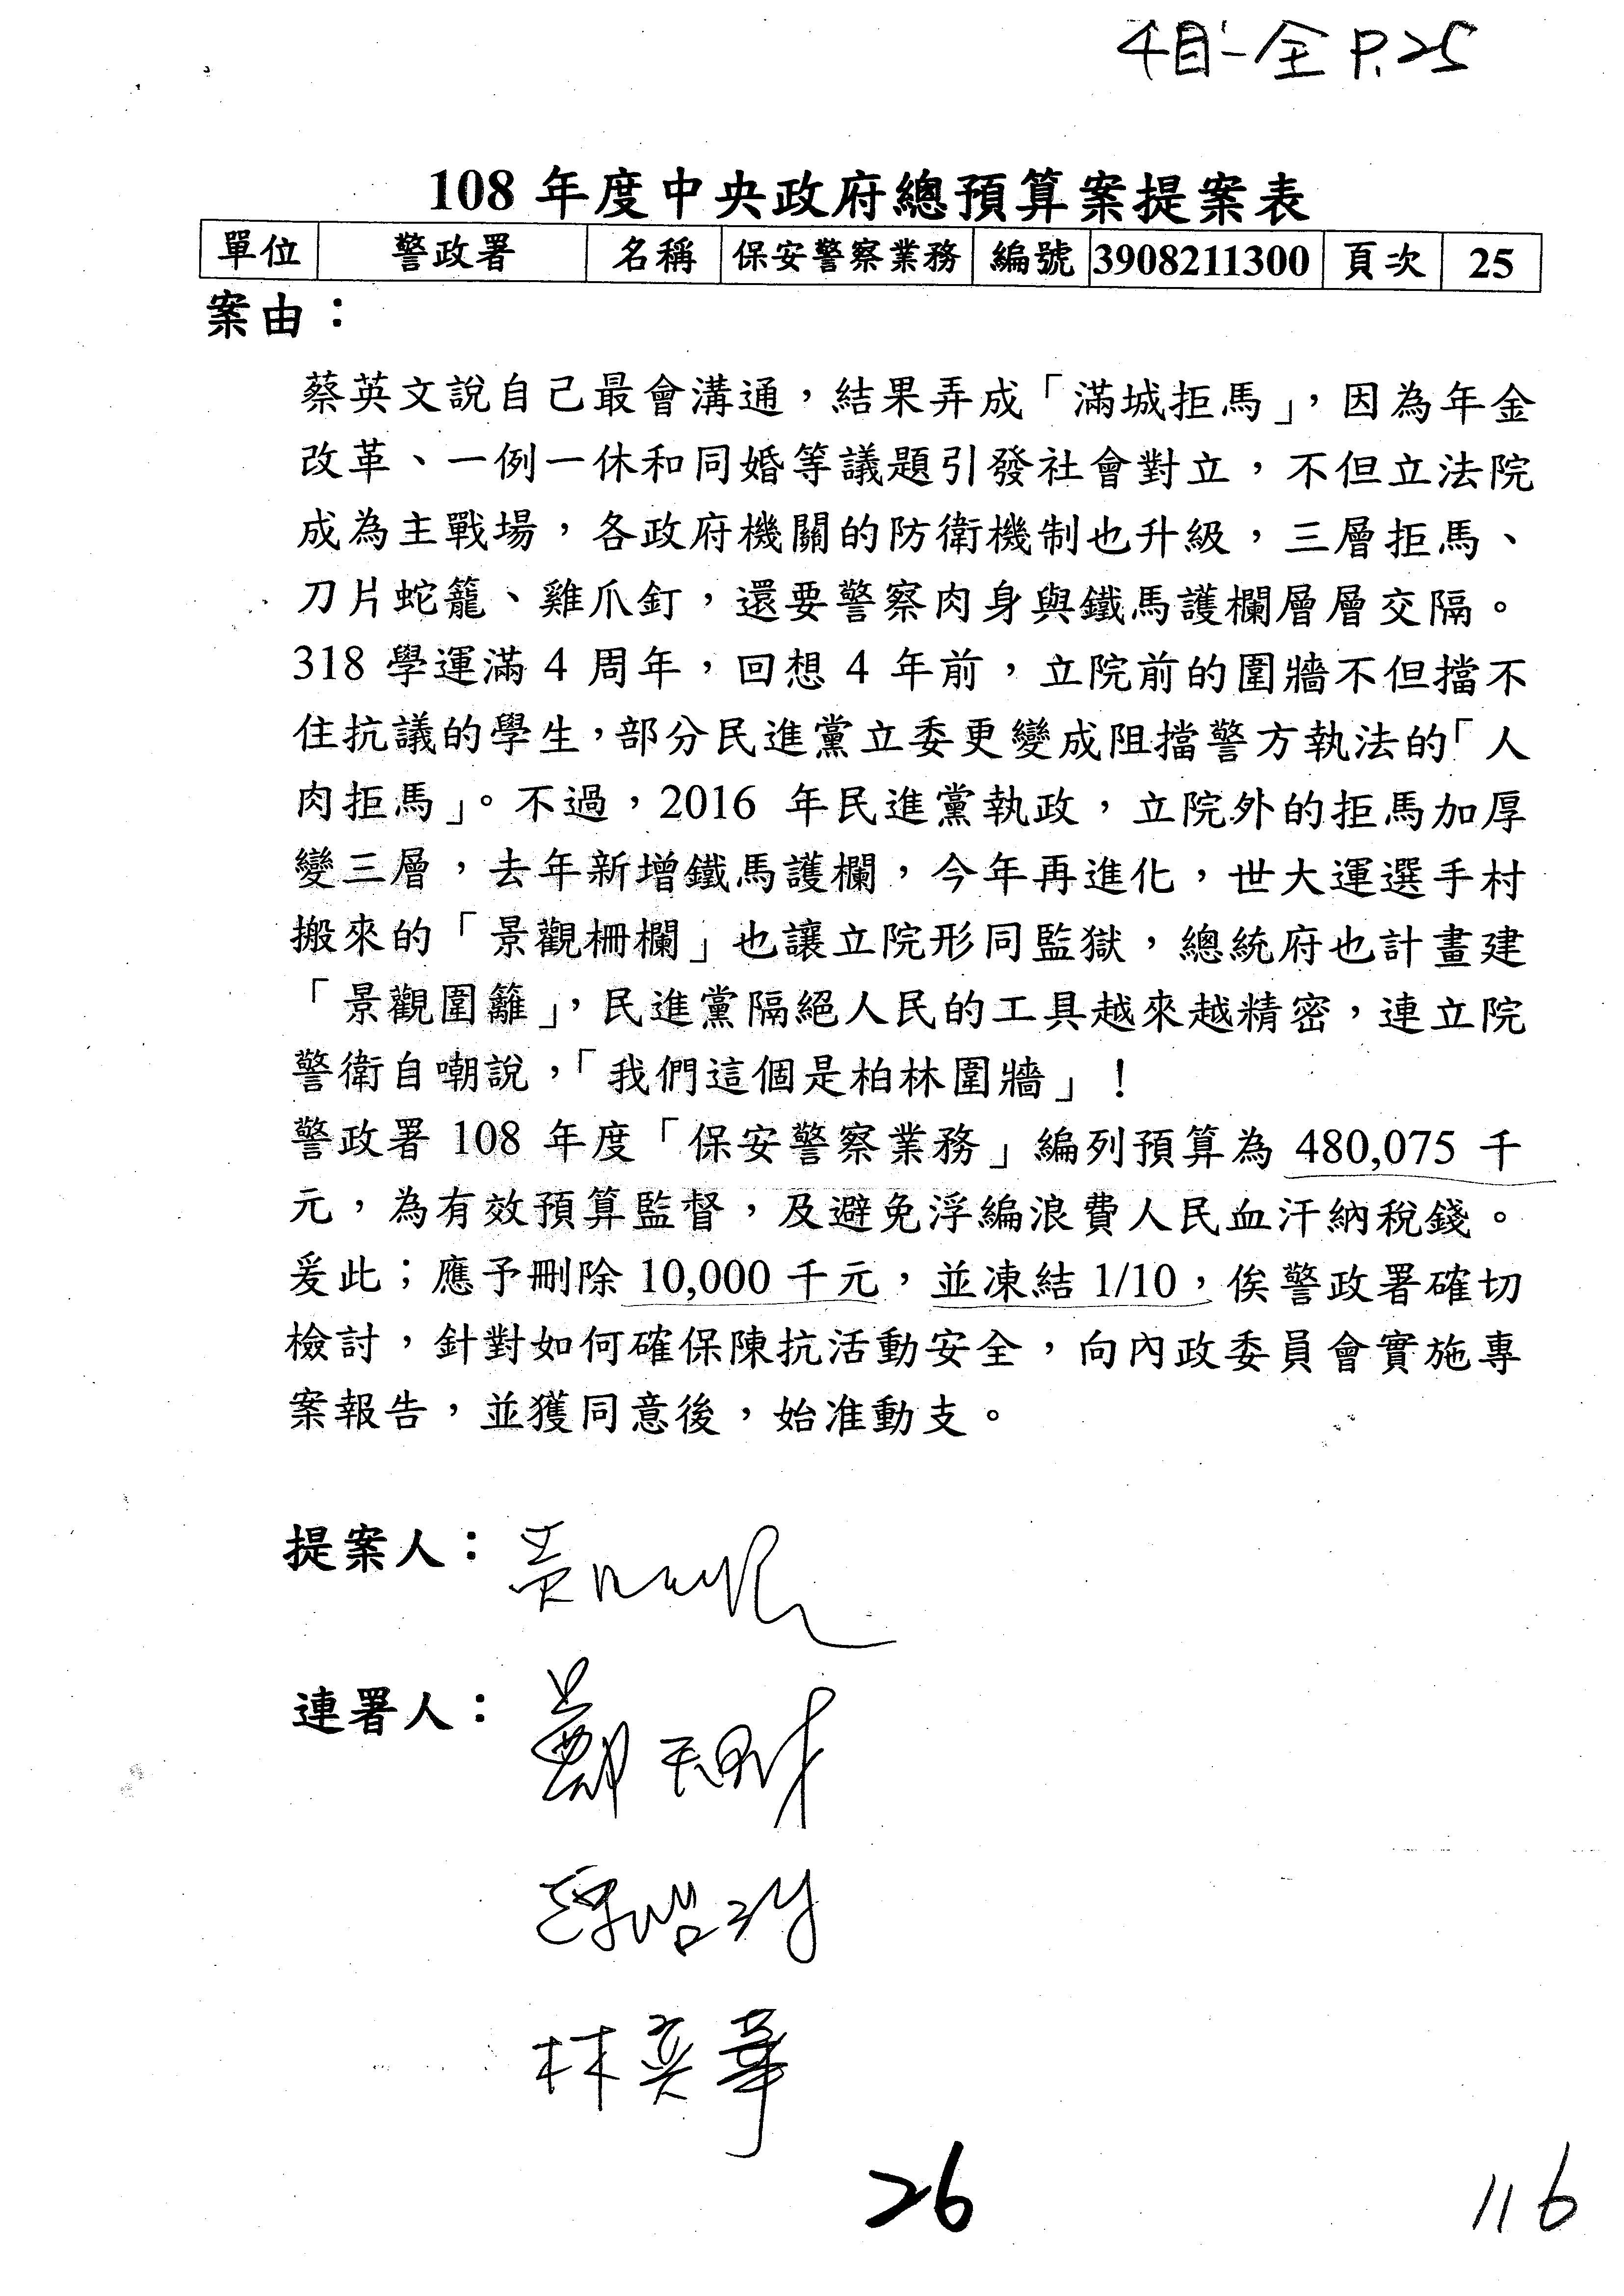 4目-全 P.25
108 年度中央政府總預算案提案表
單位 警政署 名稱 保安警察業務 編號 3908211300 頁次 25
案由：
蔡英文說自己最會溝通，結果弄成「滿城拒馬」，因為年金
改革、一例一休和同婚等議題引發社會對立，不但立法院
成為主戰場，各政府機關的防衛機制也升級，三層拒馬、
刀片蛇籠、雞爪釘，還要警察肉身與鐵馬護欄層層交隔。
318 學運滿 4 周年，回想 4 年前，立院前的圍牆不但擋不
住抗議的學生，部分民進黨立委更變成阻擋警方執法的「人
肉拒馬」。不過，2016 年民進黨執政，立院外的拒馬加厚
變三層，去年新增鐵馬護欄，今年再進化，世大運選手村
搬來的「景觀柵欄」也讓立院形同監獄，總統府也計畫建
「景觀圍籬」，民進黨隔絕人民的工具越來越精密，連立院
警衛自嘲說，「我們這個是柏林圍牆」！
警政署 108 年度「保安警察業務」編列預算為 480,075 千
元，為有效預算監督，及避免浮編浪費人民血汗納稅錢。
爰此；應予刪除 10,000 千元，並凍結 1/10，俟警政署確切
檢討，針對如何確保陳抗活動安全，向內政委員會實施專
案報告，並獲同意後，始准動支。
提案人：黃
連署人：鄭天財
林奕華
26
116